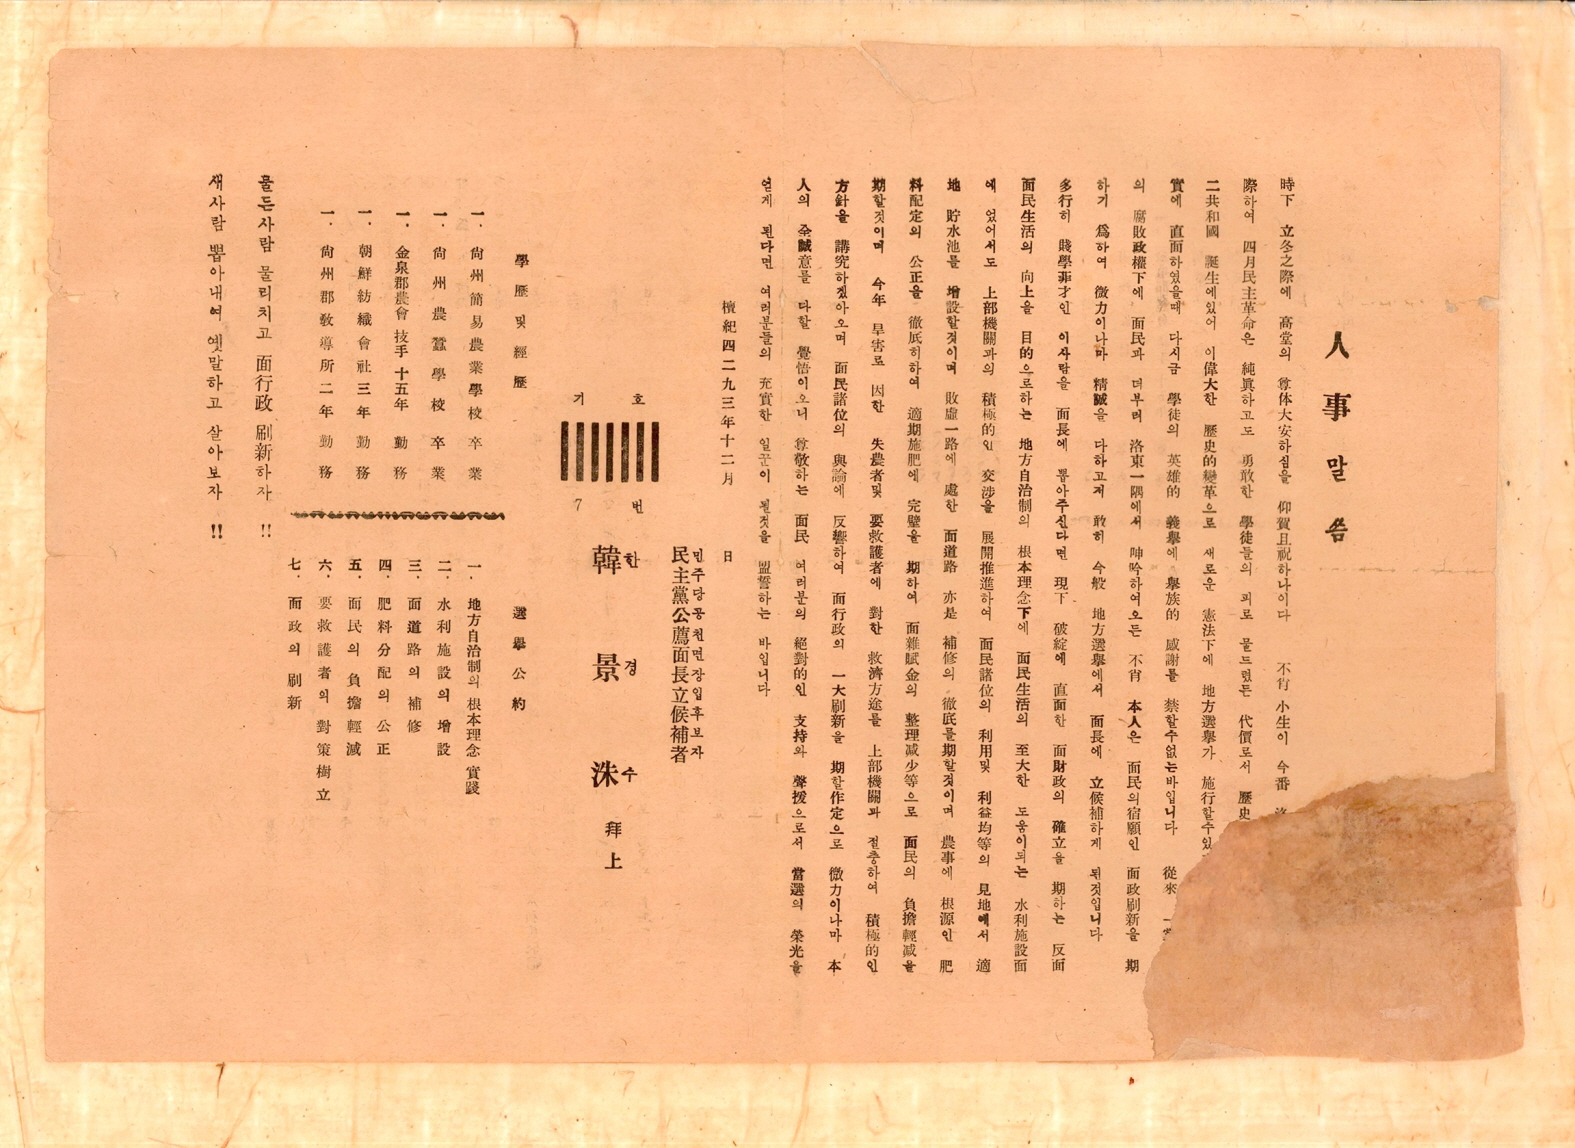 人事말씀
時下 立冬之際에 高堂의 尊体大安하심을 仰賀且祝하나이다 不肖小生이 今番
際하여 四月民主革命은 純眞하고도 勇敢한 學徒들의 피로 물드렸든 代價로서 歷史
二共和國 誕生에있어 이偉大한 歷史的變革으로 새로운 憲法下에 地方選擧가 施行할수있
實에 直面하였을때 다시금 學徒의 英雄的 義擧에 擧族的 感謝를 禁할수없는바입니다 從來 一黨
의 腐敗政權下에 面民과 더부러 洛東一隅에서 呻吟하여오든 不肖 本人은 面民의宿願인 面政刷新을 期
하기 爲하여 微力이나마 精誠을 다하고저 敢히 今般 地方選擧에서 面長에 立候補하게 된것입니다
多行히 賤學菲才인 이사람을 面長에 뽑아주신다면 現下 破綻에 直面한 面財政의 確立을 期하는 反面
面民生活의 向上을 目的으로하는 地方自治制의 根本理念下에 面民生活의 至大한 도움이되는 水利施設面
에 있어서도 上部機關과의 積極的인 交涉을 展開推進하여 面民諸位의 利用및 利益均等의 見地에서 適
地 貯水池를 增設할것이며 敗虛一路에 處한 面道路 亦是 補修의 徹底를期할것이며 農事에 根源인 肥
料配定의 公正을 徹底히하여 適期施肥에 完璧을 期하여 面雜賦金의 整理減少等으로 面民의 負擔輕減을
期할것이며 今年 旱害로 因한 失農者및 要救護者에 對한 救濟方途를 上部機關과 절충하여 積極的인
方針을 講究하겠아오며 面民諸位의 輿論에 反響하여 面行政의 一大刷新을 期할作定으로 微力이나마 本
人의 全誠意를 다할 覺悟이오니 尊敬하는 面民 여러분의 絕對的인 支持와 聲援으로서 當選의 榮光을
얻게 된다면 여러분들의 充實한 일꾼이 될것을 盟誓하는 바입니다
檀紀四二九三年十二月 日
민주당공천면장입후보자
民主黨公薦面長立候補者
기호
7번
한경수
韓景洙 拜上
學歷및經歷
一. 尙州簡易農業學校卒業
一. 尙州農蠶學校卒業
一. 金泉郡農會 技手十五年勤務
一. 朝鮮紡織會社三年勤務
一. 尙州郡敎導所二年勤務
選擧公約
一. 地方自治制의 根本理念 實踐
二. 水利施設의 增設
三. 面道路의 補修
四. 肥料分配의 公正
五. 面民의 負擔輕減
六. 要救護者의 對策樹立
七. 面政의 刷新
물든사람 물리치고 面行政 刷新하자 !!
새사람 뽑아내여 옛말하고 살아보자 !!